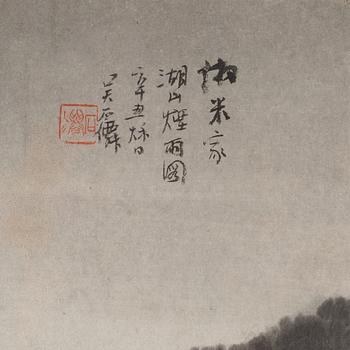 仿米家
湖山煙雨圖
辛丑秋日
吳石僊
石僊